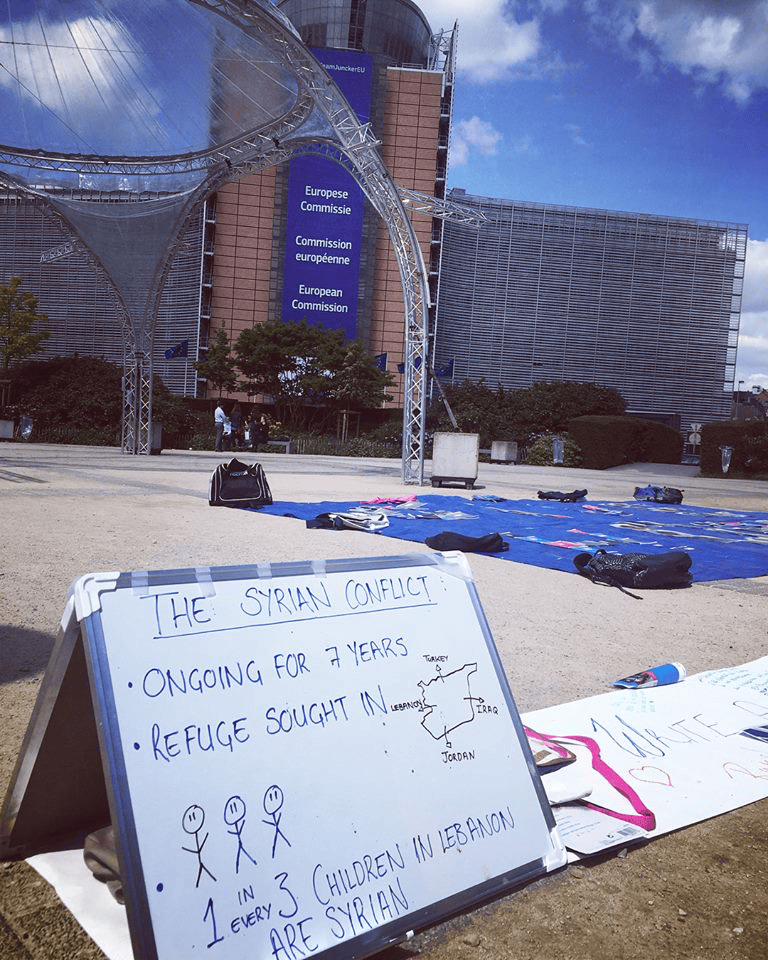 #TeamJunckerEU
Europese
Commissie
Commission
européenne
European
Commission
THE SYRIAN CONFLICT
• ONGOING FOR 7 YEARS
• REFUGE SOUGHT IN
TURKEY
LEBANON
IRAQ
JORDAN
• 1 IN EVERY 3 CHILDREN IN LEBANON
ARE SYRIAN
WRITE A